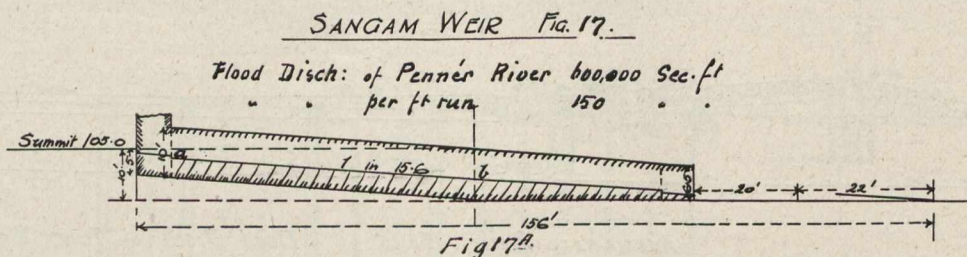 SANGAM WEIR FIG. 17.
Flood Disch: of Pennér River 600,000 Sec. ft
" " per ft run 150 " "
Summit 105.0
10'
5'
10'
a
1 in 15.6
b
6.5'
20'
22'
156'
Fig 17A.